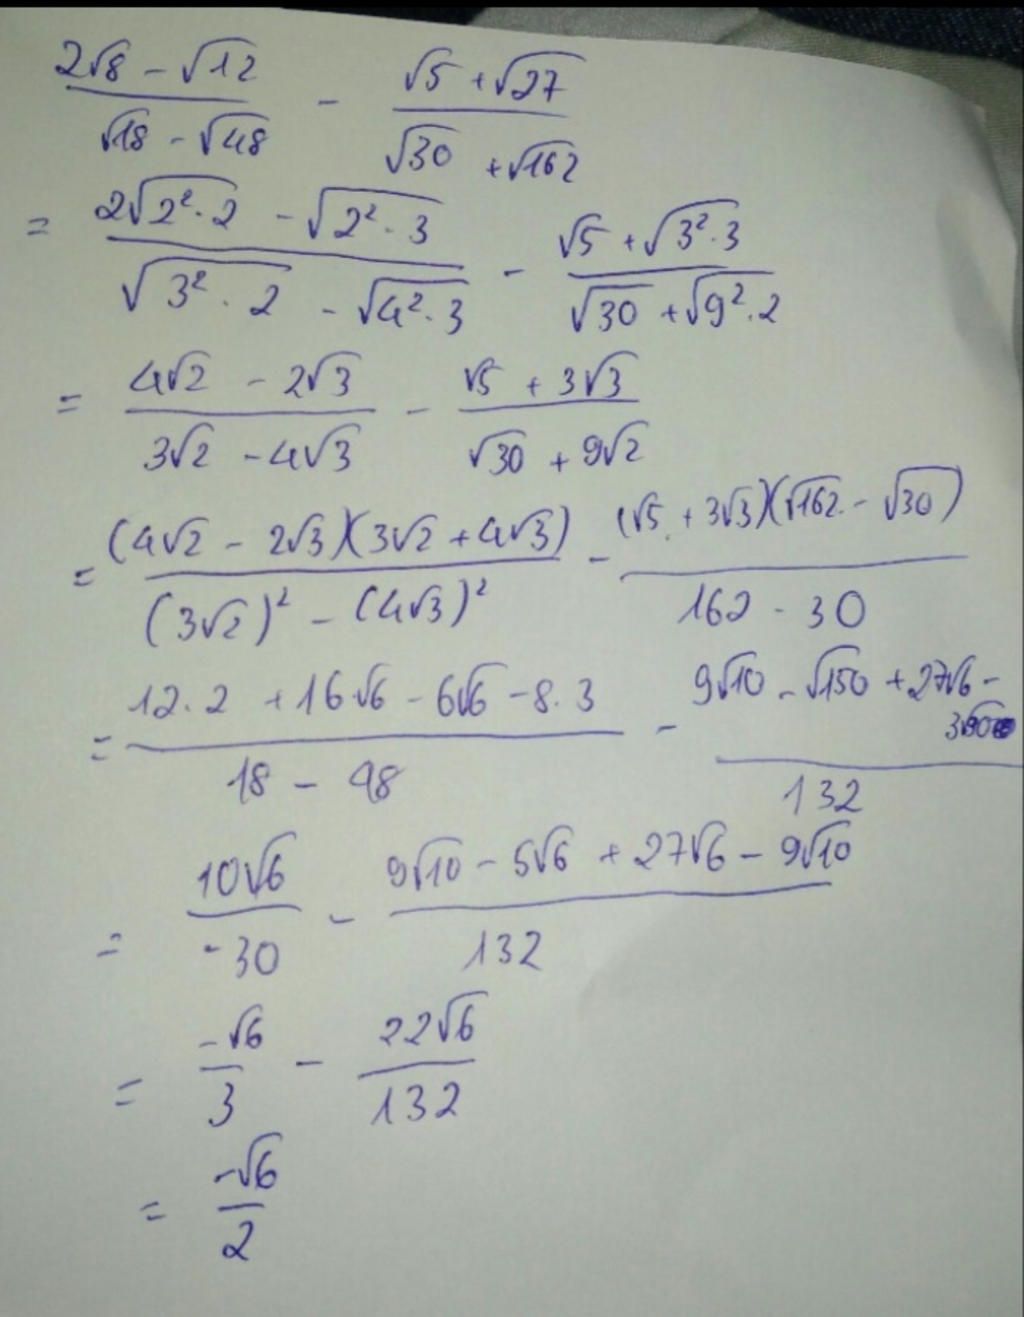 (2√8 - √12)/(√18 - √48) - (√5 + √27)/(√30 + √162)
= (2√(2²·2) - √(2²·3))/(√(3²·2) - √(4²·3)) - (√5 + √(3²·3))/(√30 + √(9²·2))
= (4√2 - 2√3)/(3√2 - 4√3) - (√5 + 3√3)/(√30 + 9√2)
= ((4√2 - 2√3)(3√2 + 4√3))/((3√2)² - (4√3)²) - ((√5 + 3√3)(√162 - √30))/(162 - 30)
= (12·2 + 16√6 - 6√6 - 8·3)/(18 - 48) - (9√10 - √150 + 27√6 - 3√90)/132
= 10√6/-30 - (9√10 - 5√6 + 27√6 - 9√10)/132
= -√6/3 - 22√6/132
= -√6/2